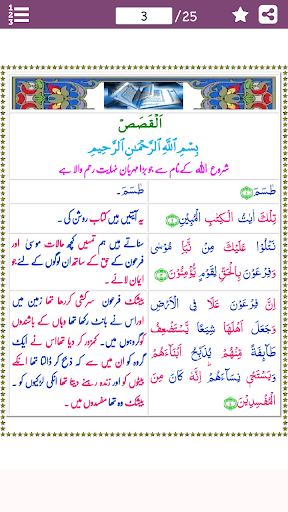 1
2
3
3
/25
اَلْقَصَصْ
بِسْمِ اللّٰهِ الرَّحْمٰنِ الرَّحِيْمِ
شروع اللہ کے نام سے جو بڑا مہربان نہایت رحم والا ہے
طٰسٓمّٓ ﴿۱﴾
طٰسٓمّٓ ۔
تِلْكَ اٰيٰتُ الْكِتٰبِ الْمُبِيْنِ ﴿۲﴾
یہ آیتیں ہیں کتاب روشن کی ۔
نَتْلُوْا عَلَيْكَ مِنْ نَّبَاِ مُوْسٰى
وَفِرْعَوْنَ بِالْحَقِّ لِقَوْمٍ يُّؤْمِنُوْنَ ﴿۳﴾
سناتے ہیں ہم تمہیں کچھ حالات موسیٰ اور
فرعون کے حق کے ساتھ ان لوگوں کے لئے جو
ایمان لائے ۔
اِنَّ فِرْعَوْنَ عَلَا فِى الْاَرْضِ
وَجَعَلَ اَهْلَهَا شِيَعًا يَّسْتَضْعِفُ
طَآٮِٕفَةً مِّنْهُمْ يُذَبِّحُ اَبْنَآءَهُمْ
وَيَسْتَحْىٖ نِسَآءَهُمْ ؕ اِنَّهٗ كَانَ مِنَ
الْمُفْسِدِيْنَ ﴿۴﴾
بیشک فرعون سرکشی کررھا تھا زمین میں
اوراس نے بانٹ رکھا تھا وھاں کے باشندوں
کو گروھوں میں۔ کمزور کر دیا تھااس نے ایک
گروہ کو ان میں سے کہ ذبح کر ڈالتا تھا انکے
بیٹوں کو اور زندہ رھنے دیتا تھا انکی لڑکیوں کو ۔
بیشک وہ تھا مفسدوں میں ۔